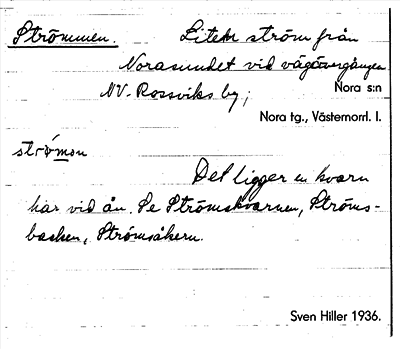 Strömmen. Liten ström från
Norasundet vid vägövergången
NV. Rossviks by; Nora s:n
Nora tg., Västernorrl. l.
strö̀mɔn
Det ligger en kvarn
här vid ån. Se Strömskvarnen, Ströms-
backen, Strömsåkern.
Sven Hiller 1936.